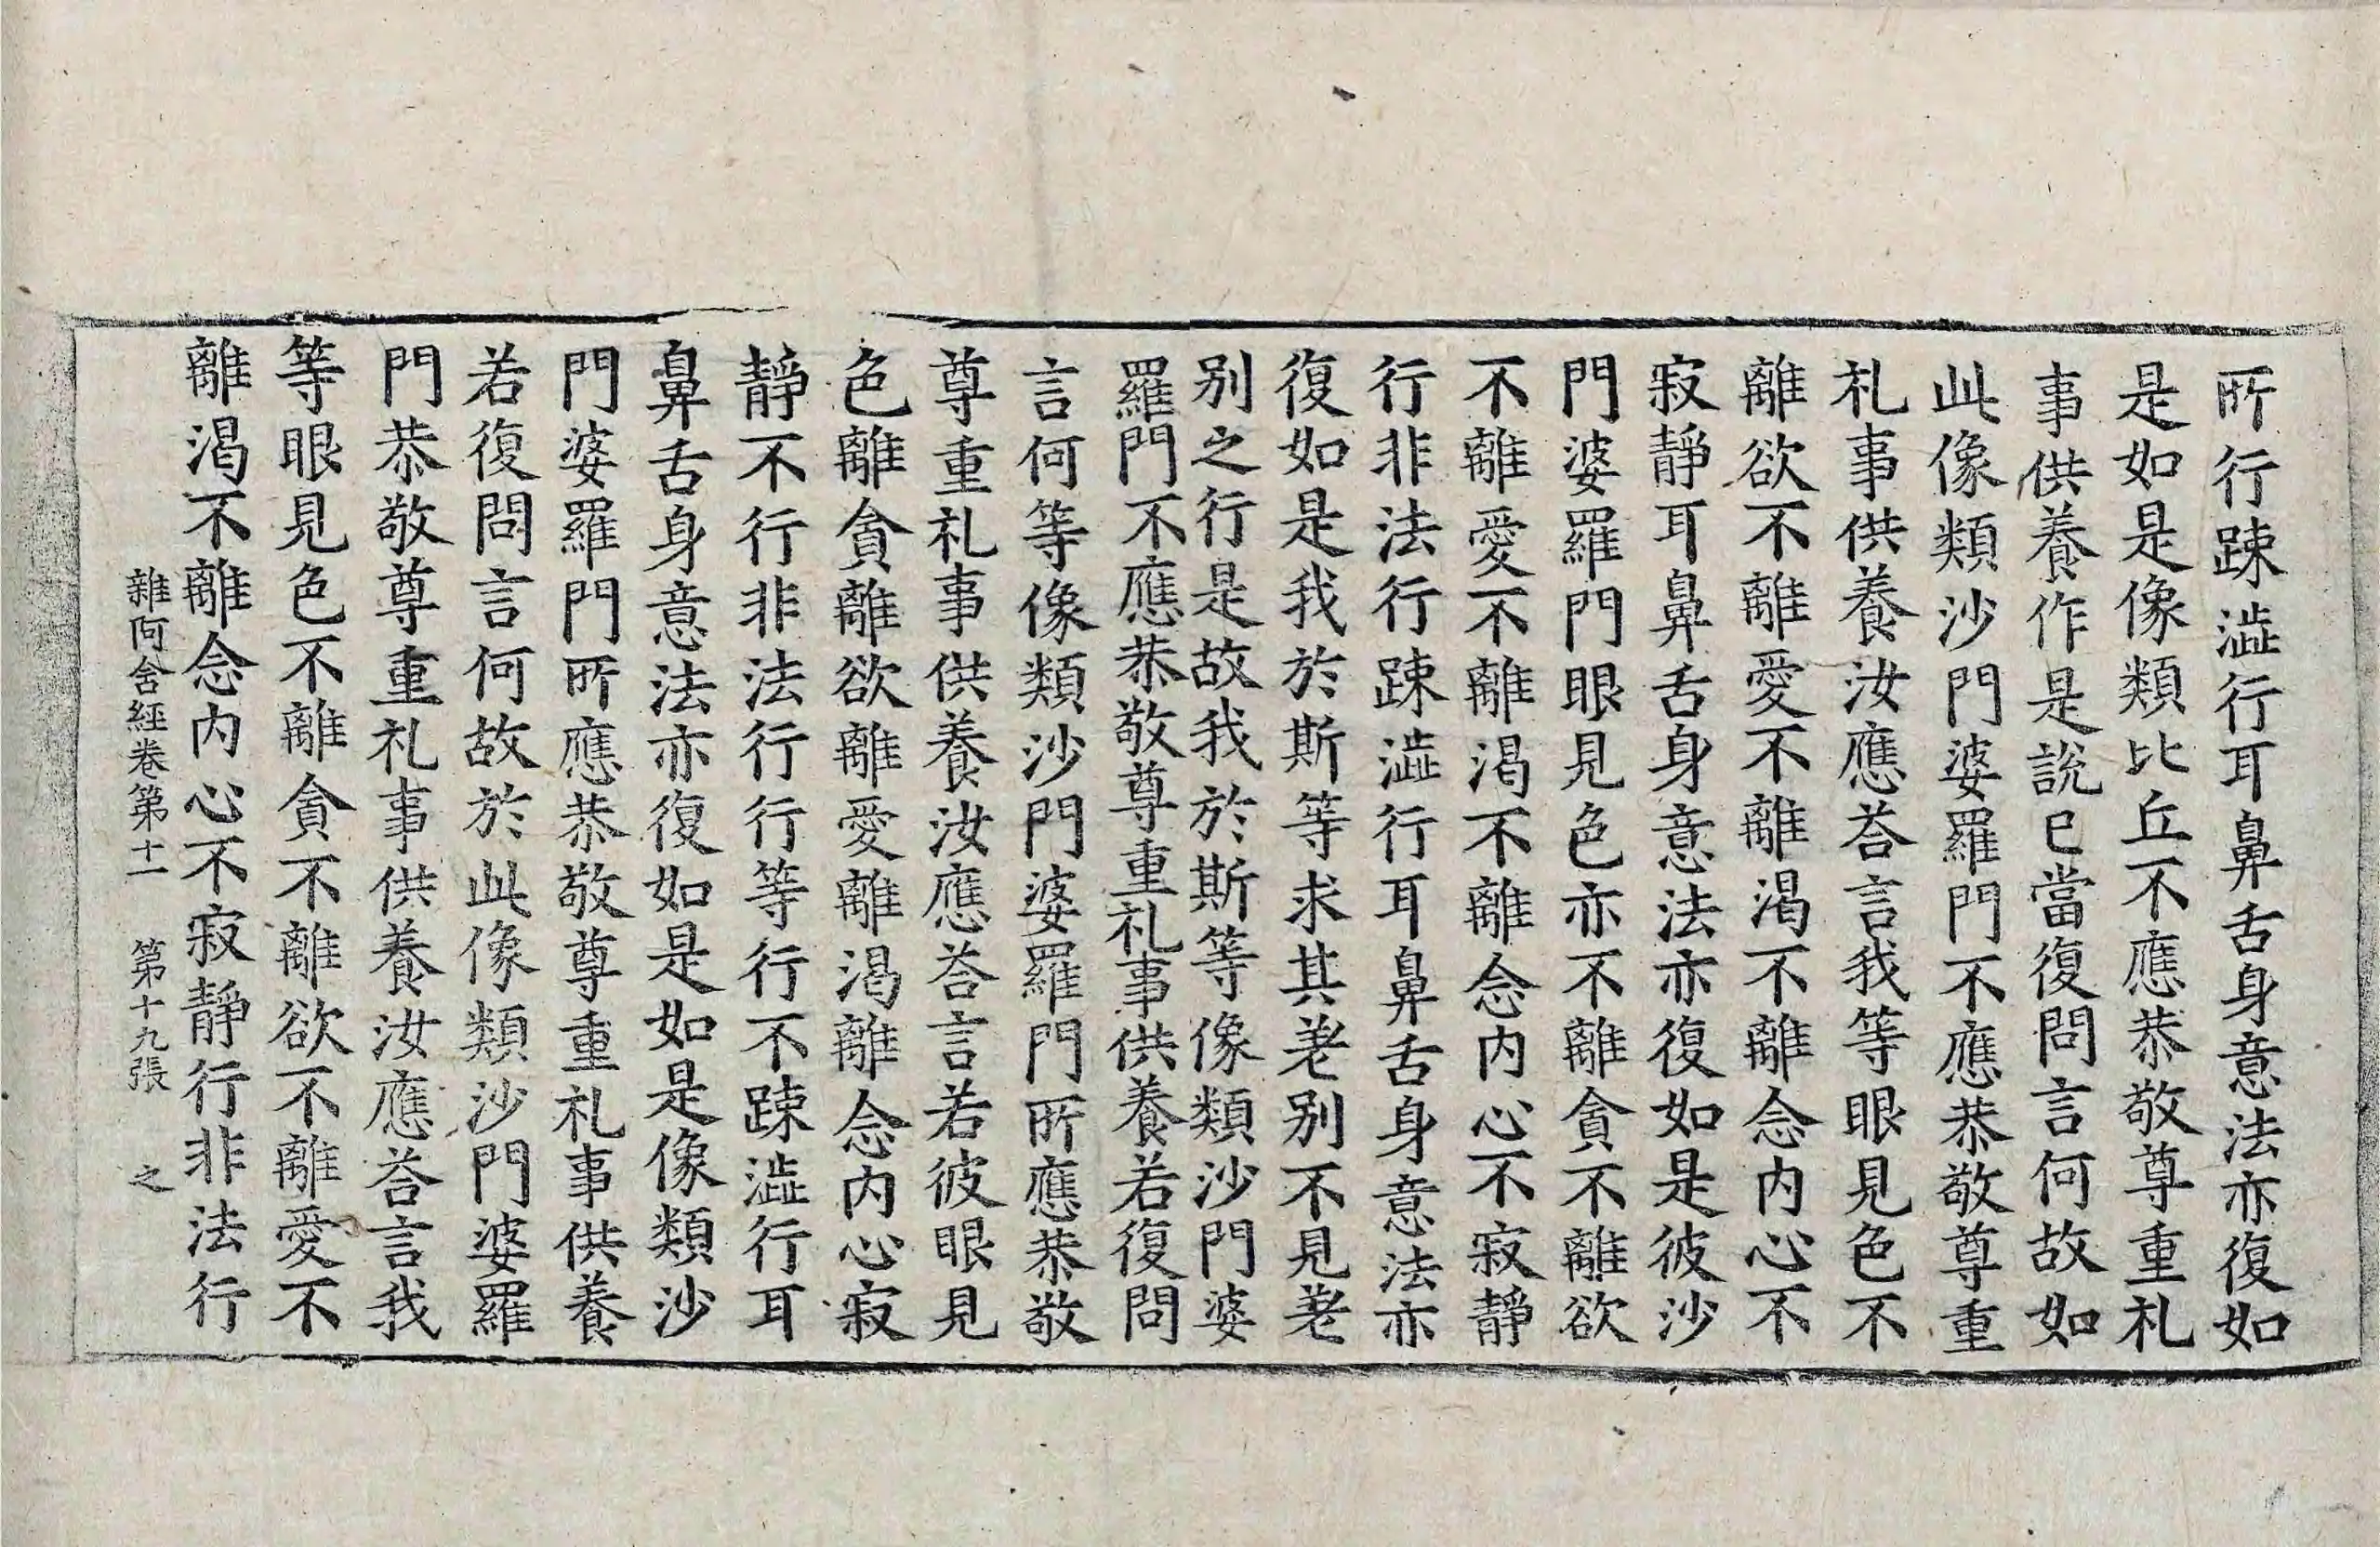 所行踈澁行耳鼻舌身意法亦復如
是如是像類比丘不應恭敬尊重礼
事供養作是說已當復問言何故如
此像類沙門婆羅門不應恭敬尊重
礼事供養汝應荅言我等眼見色不
離欲不離愛不離渴不離念内心不
寂靜耳鼻舌身意法亦復如是彼沙
門婆羅門眼見色亦不離貪不離欲
不離愛不離渴不離念内心不寂靜
行非法行踈澁行耳鼻舌身意法亦
復如是我於斯等求其差別不見差
別之行是故我於斯等像類沙門婆
羅門不應恭敬尊重礼事供養若復問
言何等像類沙門婆羅門所應恭敬
尊重礼事供養汝應荅言若彼眼見
色離貪離欲離愛離渴離念内心寂
靜不行非法行行等行不踈澁行耳
鼻舌身意法亦復如是如是像類沙
門婆羅門所應恭敬尊重礼事供養
若復問言何故於此像類沙門婆羅
門恭敬尊重礼事供養汝應荅言我
等眼見色不離貪不離欲不離愛不
離渴不離念内心不寂靜行非法行
雜阿含經卷第十一 第十九張 之